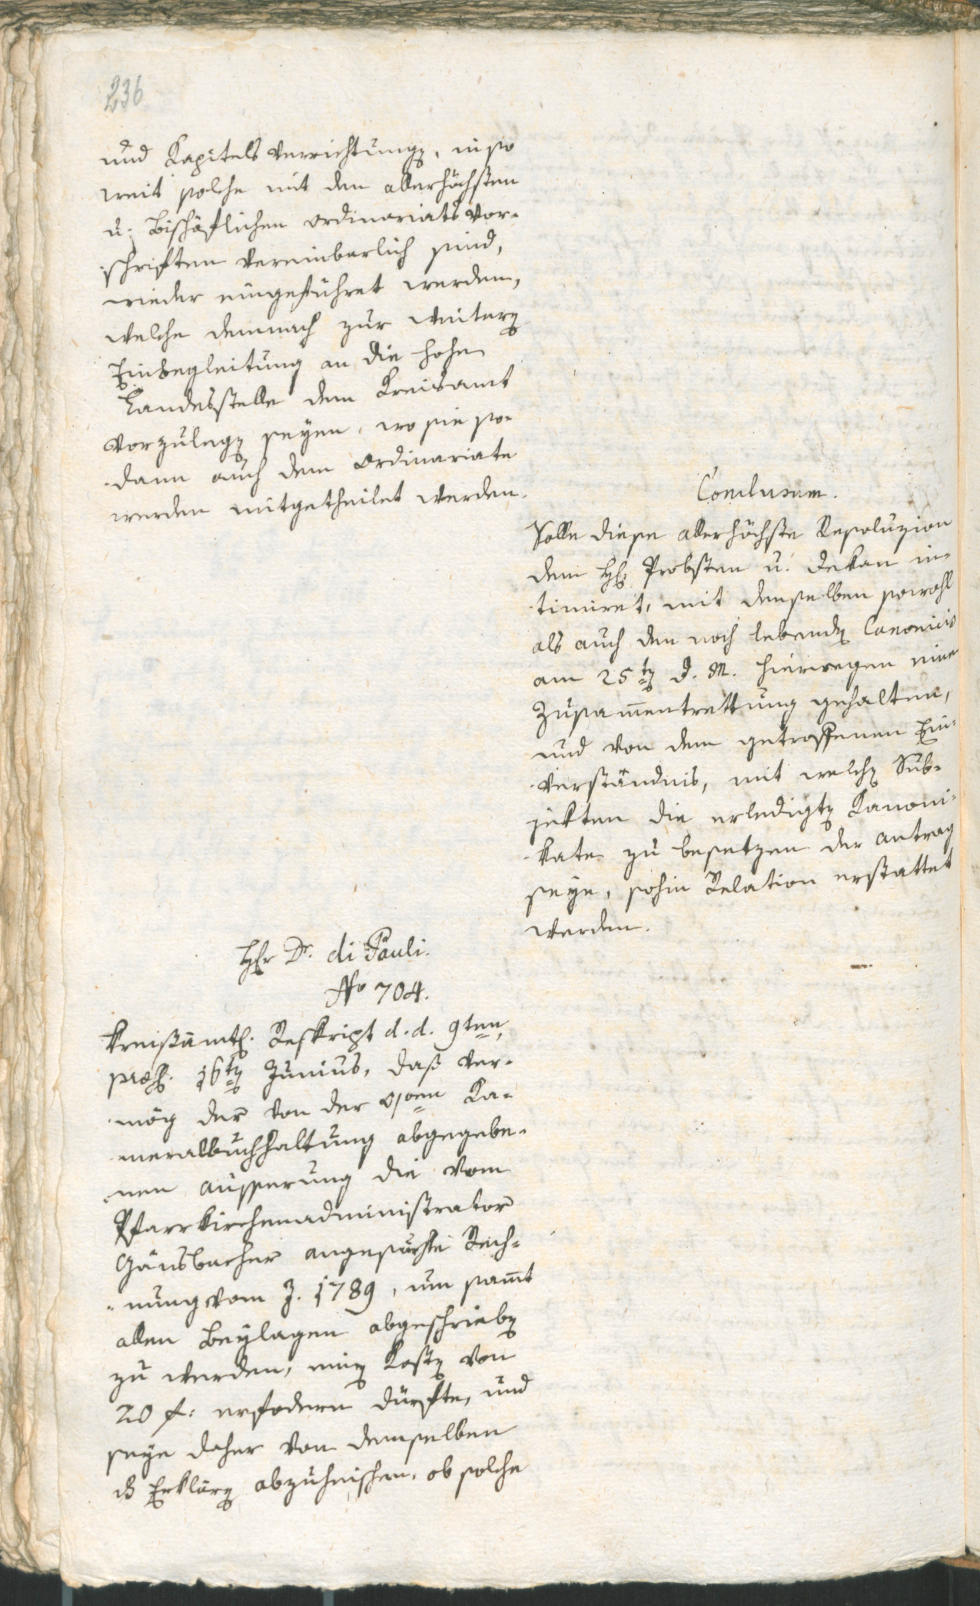 236
und Kapitels Verrichtungen, in so
weit solche mit den allerhöchsten
u: Bischöflichen Ordinariats Vor-
schriften vereinbarlich sind,
wieder eingeführet werden,
welche demnach zur weitern
Einbegleitung an die hohe
Landesstelle dem Kreisamt
vorzulegen seyen, wo sie so-
dann auch dem Ordinariate
werden mitgetheilet werden.
Conclusum.
Solle diese allerhöchste Resoluzion
dem H: Probsten u: Dekan in-
timiret, mit demselben sowohl
als auch den noch lebenden Canonicis
am 25ten d. M. hierwegen eine
Zusam̄entrettung gehalten,
und von dem getroffenen Ein-
verständnis, mit welchen Sub-
jekten die erledigten Kanoni-
kate zu besetzen der Antrag
seye, sohin Relation erstattet
werden.
Hr Dr. di Pauli.
No 704.
Kreisämtl. Reskript d. d. 9ten,
præs. 16ten Junius, daß ver-
mög der von der Kaa-
meralbuchhaltung abgegebe-
nen äusserung die vom
Pfarrkirchenadministrator
Gänsbacher angesuchte Rech-
nung vom J. 1789, um sam̄t
allen Beylagen abgeschrieben
zu werden, einen Kosten von
20 f: erfodern dürfte, und
seye daher von demselben
die Erklärung abzuheischen, ob solche